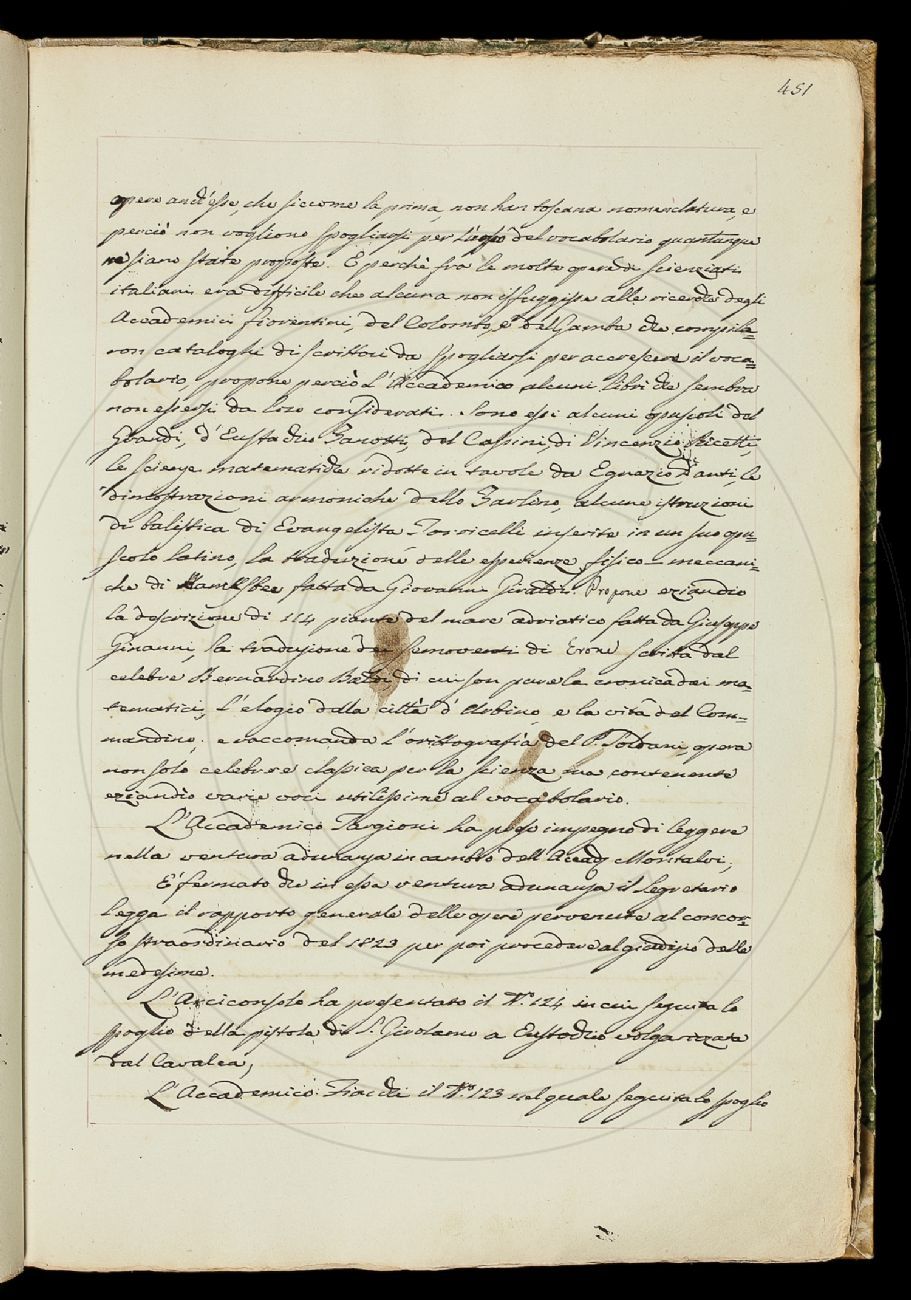 451
opere anch'esse, che siccome le prime, non han toscana nomenclatura, e
perciò non vogliono spogliarsi per l'uso del vocabolario quantunque
ne siano state proposte. E perchè fra le molte opere di scienziati
italiani era difficile che alcuna non isfuggisse alle ricerche degli
Accademici fiorentini, del Colombo, e del Gamba che compila=
ron cataloghi di scrittori da spogliarsi per accrescere il voca=
bolario, propone perciò l'Accademico alcuni libri che sembra
non essersi da loro considerati. Sono essi alcuni opuscoli del
Grandi, d'Eustachio Zanotti, del Cassini, di Vincenzio Riccati,
le scienze matematiche ridotte in tavole da Egnazio Danti, le
dimostrazioni armoniche dello Zarlino, alcune istruzioni
di balistica di Evangelista Torricelli inserite in un suo opu=
scolo latino, la traduzione delle esperienze fisico-meccani=
che di Hauksbee fatta da Giovanni Giraldi. Propone eziandio
la descrizione di 114 piante del mare adriatico fatta da Giuseppe
Ginanni, la traduzione dei semoventi di Erone scritta dal
celebre Bernardino Baldi, di cui son pure la cronica dei ma=
tematici, l'elogio della città d'Urbino, e la vita del Com=
mandino; e raccomanda l'orittografia del P. Soldani, opera
non solo celebre e classica per la scienza ma contenente
eziandio varie voci utilissime al vocabolario.
L'Accademico Targioni ha preso impegno di leggere
nella ventura adunanza in cambio dell'Accad. Montalvi;
E' fermato che in essa ventura adunanza il Segretario
legga il rapporto generale delle opere pervenute al concor=
so straordinario del 1823 per poi procedere al giudizio delle
medesime.
L'Arciconsolo ha presentato il N.° 124 in cui seguita lo
spoglio della pistola di S. Girolamo a Eustochio volgarizzata
dal Cavalca;
L'Accademico Fiacchi il N.° 123 nel quale seguita lo spoglio